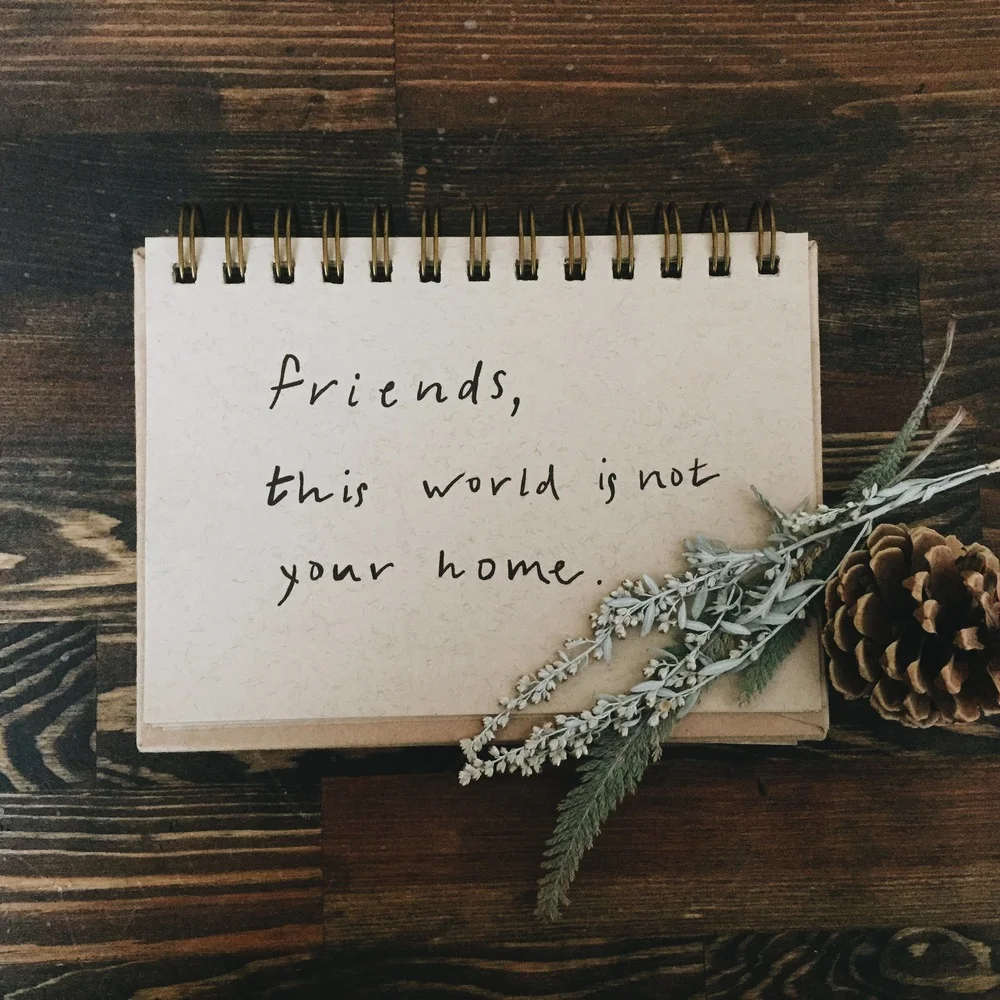 friends,
this world is not
your home.